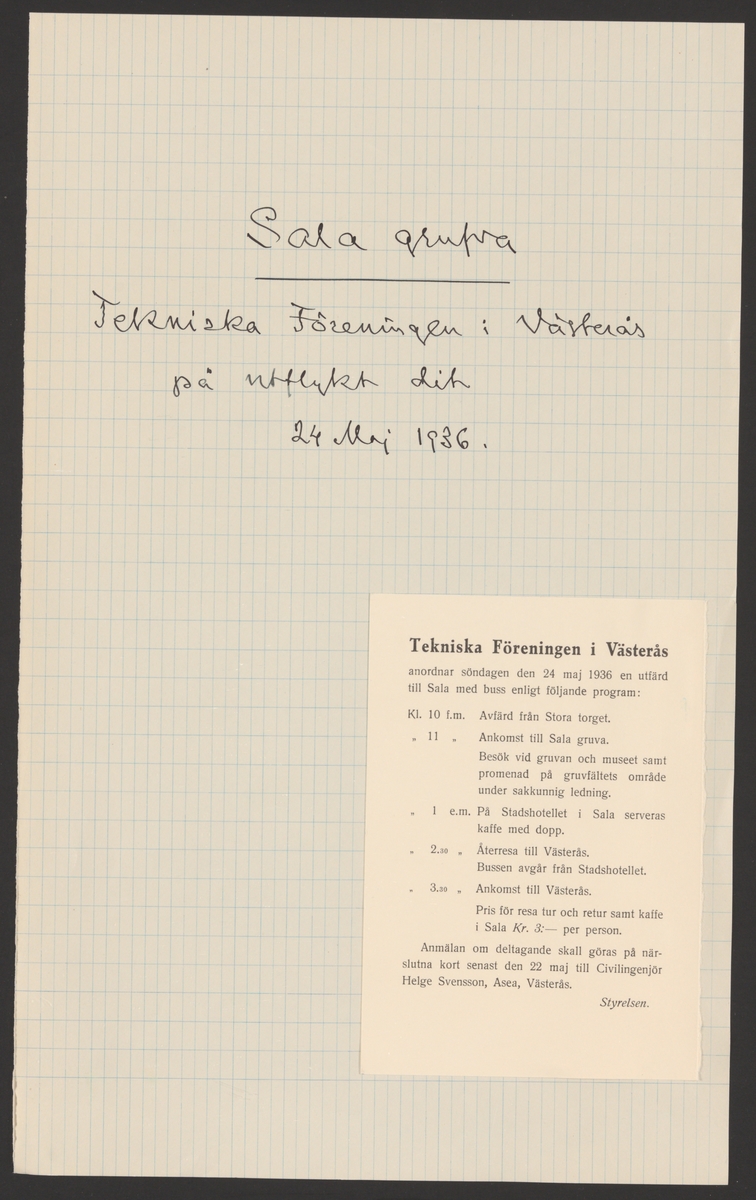 Sala grufva
Tekniska Föreningen i Västerås
på utflykt dit
24 Maj 1936.
Tekniska Föreningen i Västerås
anordnar söndagen den 24 maj 1936 en utfärd
till Sala med buss enligt följande program:
Kl. 10 f.m. Avfärd från Stora torget.
„ 11 „ Ankomst till Sala gruva.
Besök vid gruvan och museet samt
promenad på gruvfältets område
under sakkunnig ledning.
„ 1 e.m. På Stadshotellet i Sala serveras
kaffe med dopp.
„ 2.30 „ Återresa till Västerås.
Bussen avgår från Stadshotellet.
„ 3.30 „ Ankomst till Västerås.
Pris för resa tur och retur samt kaffe
i Sala Kr. 3:— per person.
Anmälan om deltagande skall göras på när-
slutna kort senast den 22 maj till Civilingenjör
Helge Svensson, Asea, Västerås.
Styrelsen.